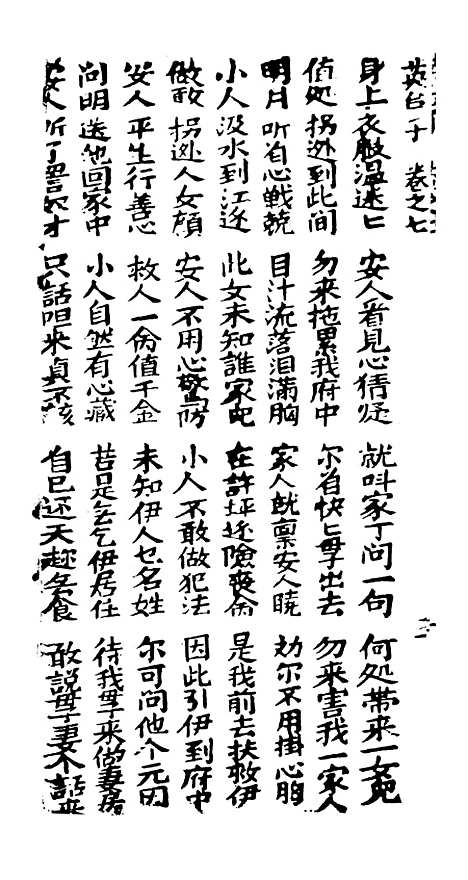 英台子 卷之七
身上衣服温迷匕 安人看見心猜疑 就叫家丁问一句 何処带来一女
值処拐逊到此间 勿来拖累我府中 尔省快匕出去 勿来害我一家人
明月听省心战兢 目汁流落泪满胸 家人就禀安人晓 劝尔不用掛心胸
小人汲水到江边 此女未知誰家 在許坪边險喪命 是我前去扶救伊
做敢拐逊人女顔 安人不用心驚防 小人不敢做犯法 因此引伊到府中
安人平生行善心 救人一命值千金 未知伊人乜名姓 尔可问他个元因
问明送他回家中 小人自然有心藏 若是乞伊居住 待我来做妻房
安人听了罵奴才 只話呾来真不該 自己还天趁乞食 敢説妻不